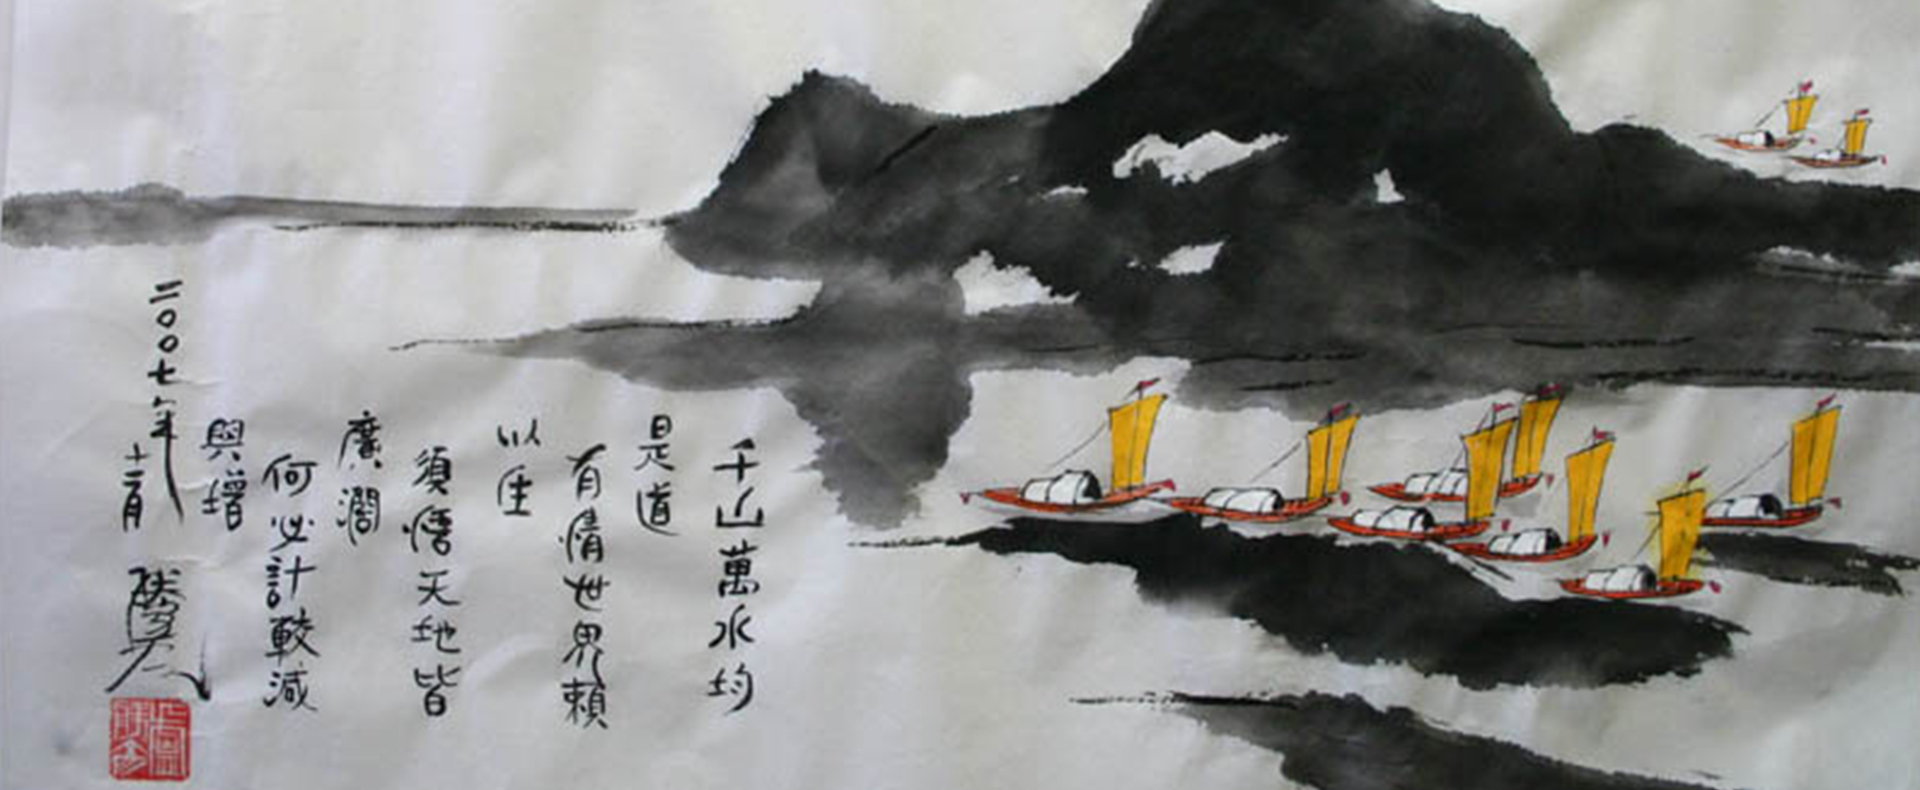 千山萬水均
是道
有情世界賴
以生
須悟天地皆
廣濶
何必計較減
與增
二００七年
十二月